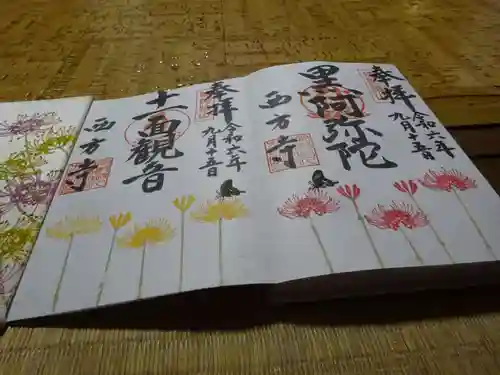 奉拝
令和二年
九月十五日
黒阿弥陀
西方寺
奉拝
令和二年
九月十五日
十一面観音
西方寺